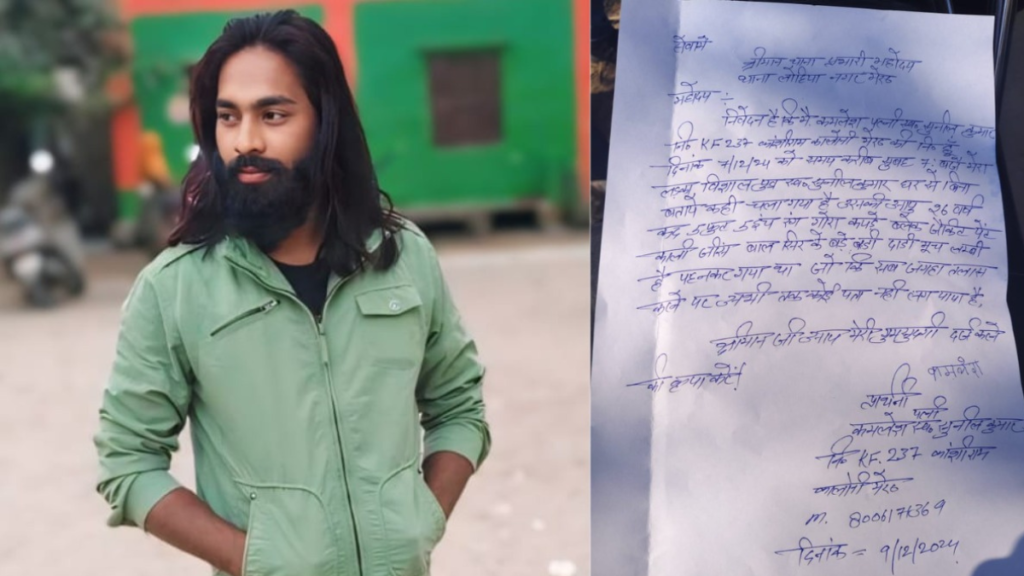 सेवामें
श्रीमान थाना प्रभारी महोदय
थाना लोहिया नगर मेरठ
महोदय
निवेदन है कि मैं कमलेश पत्नी स्व. सुनील कुमार
नि० KF 237 कांशीराम कालोनी मेरठ की नि० है
दिनांक 7/12/24 को समय करीब सुबह बजे मेरा
विशाल पुत्र स्व. सुनील कुमार घर से बिना
बताये कही चला गया है जिसकी आयु 26 वर्ष
कद 5 फुट 5 इंच रंग गोरा कपडे ब्लैक जैकेट पेंट
काली जींस बाल सिर के बडे बडी दाडी मूछ लम्बी
है पहनकर गया था जो कि सब जगह तलाश
करने पर अभी तक कोई पता नही लग पाया है.
श्रीमान जी आप मेरी गुमशुदगी दर्ज करने
की कृपा करें!
कमलेश
प्रार्थनी
कमलेश पत्नी स्व. सुनील कुमार
नि० KF. 237 कांशीराम
कालोनी मेरठ
m.
दिनांक = 9/12/2024